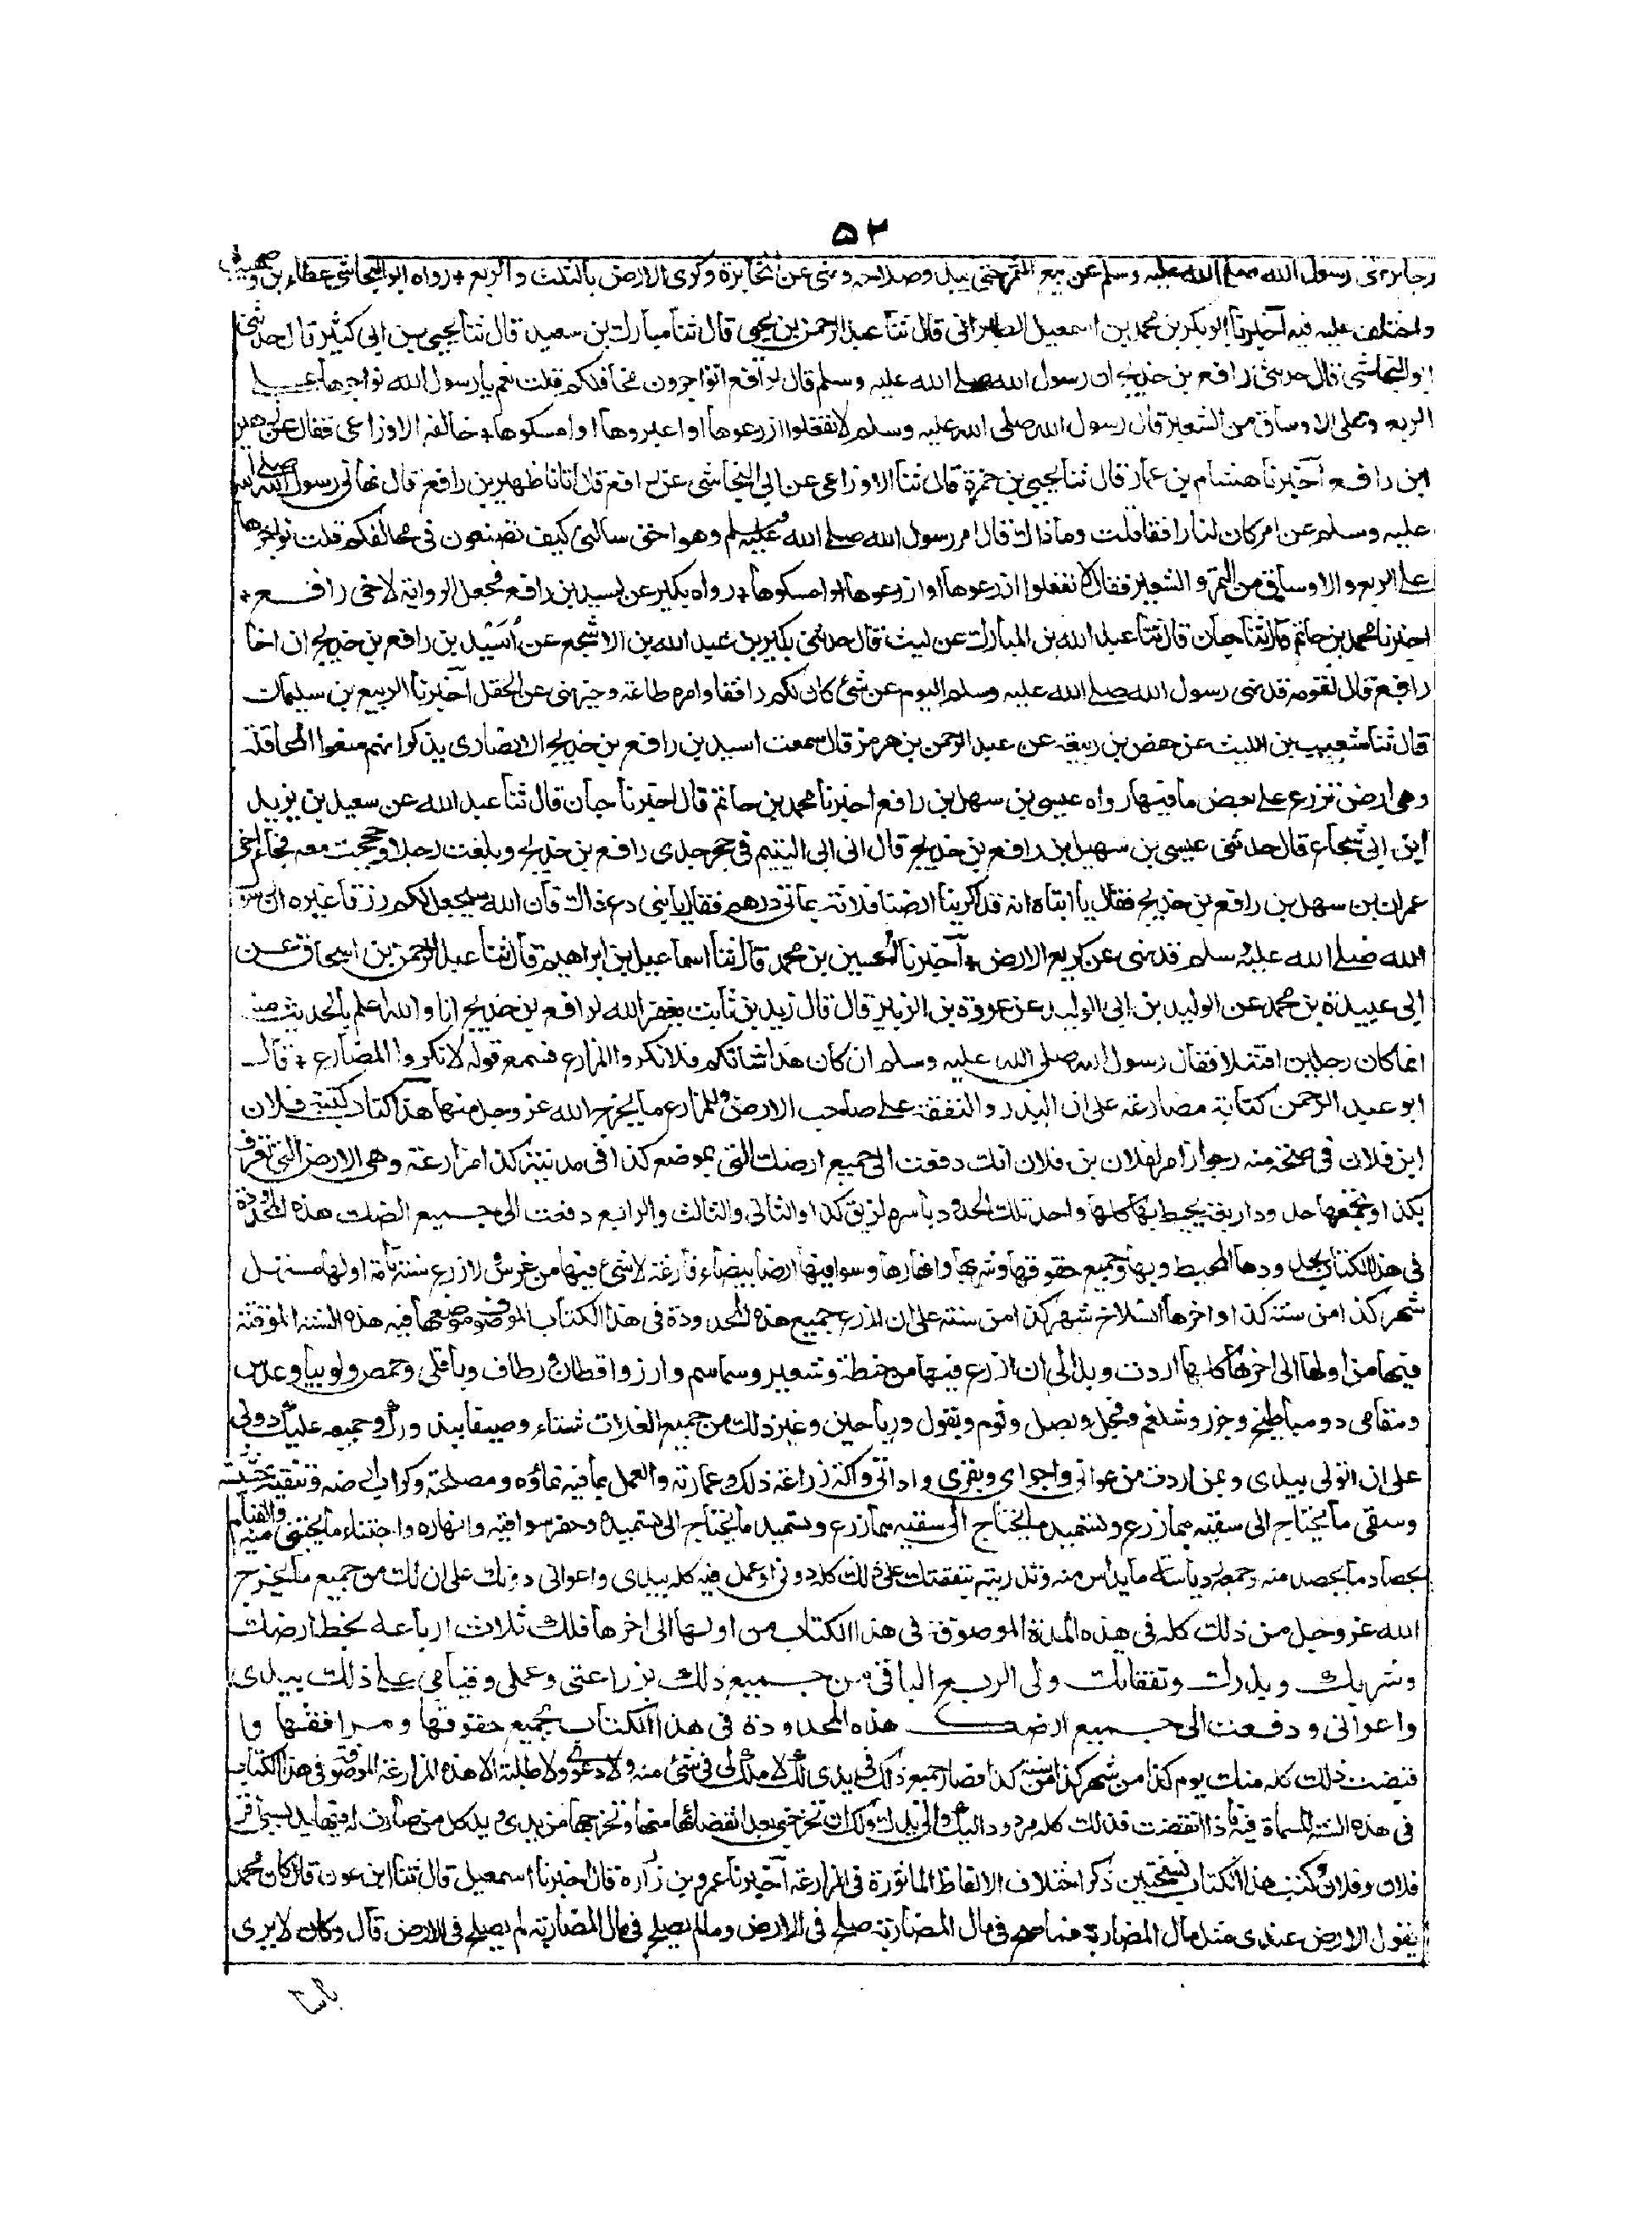 ٥٢
وجابر نهى رسول الله صلى الله عليه وسلم عن بيع الثمر حتى يبدو صلاحه ونهى عن المخابرة وكرى الارض بالثلث والربع + رواه ابو النجاشى عطاء بن صهيب
واختلف عليه فيه آخبرنا ابو بكر بن محمد بن اسمعيل الطبرانى قال ثنا عبد الرحمن بن يحيى قال ثنا مبارك بن سعيد قال ثنا يحيى بن ابى كثير قال حدثنى
ابو النجاشى قال حدثنى رافع بن خديج ان رسول الله صلى الله عليه وسلم قال لرافع اتواجرون محاقلكم قلت نعم يا رسول الله نواجرها على
الربع وعلى الاوساق من الشعير قال رسول الله صلى الله عليه وسلم لا تفعلوا ازرعوها او اعيروها او امسكوها + خالفه الاوزاعى فقال عن ظهير
ابن رافع آخبرنا هشام بن عمار قال ثنا يحيى بن حمزة قال ثنا الاوزاعى عن ابى النجاشى عن رافع قال اتانا ظهير بن رافع قال نهانى رسول الله صلى الله
عليه وسلم عن امر كان لنا رافقا قلت وما ذاك قال امر رسول الله صلى الله عليه وسلم وهو احق سالنى كيف تصنعون فى محاقلكم قلت نواجرها
على الربع والاوساق من التمر والشعير فقال لا تفعلوا ازرعوها او ازرعوها او امسكوها + رواه بكير عن اسيد بن رافع فجعل الرواية لاخى رافع +
اخبرنا محمد بن حاتم قال ثنا حبان قال ثنا عبد الله بن المبارك عن ليث قال حدثنى بكير بن عبد الله بن الاشج عن اُسَيْد بن رافع بن خديج ان اخا
رافع قال لقومه قد نهى رسول الله صلى الله عليه وسلم اليوم عن شئ كان لكم رافقا وامره طاعة وخير نهى عن الحقل آخبرنا الربيع بن سليمان
قال ثنا شعيب بن الليث عن حفص بن ربيعه عن عبد الرحمن بن هرمز قال سمعت اسيد بن رافع بن خديج الانصارى يذكر انهم منعوا المحاقلة
وهى ارض تزرع على بعض ما فيها رواه عيسى بن سهل بن رافع اخبرنا محمد بن حاتم قال اخبرنا حبان قال ثنا عبد الله عن سعيد بن يزيد
ابن ابى شجاع قال حدثنى عيسى بن سهيل بن رافع بن خديج قال انى لى اليتيم فى حجر جدى رافع بن خديج وبلغت رجلا وحججت معه فجاء اخى
عمران بن سهل بن رافع بن خديج فقال يا ابتاه انه قد اكرينا ارضنا فلانة بمأتى درهم فقال يا بنى دع ذاك فان الله سيجعل لكم رزقا غيره ان رسول
الله صلى الله عليه وسلم قد نهى عن كرى الارض + آخبرنا الحسين بن محمد قال ثنا اسماعيل بن ابراهيم قال ثنا عبد الرحمن بن اسحاق عن
ابى عبيدة بن محمد عن الوليد بن ابى الوليد عن عروة بن الزبير قال قال زيد بن ثابت يغفر الله لرافع بن خديج انا والله اعلم بالحديث منه
انما كان رجلين اقتتلا فقال رسول الله صلى الله عليه وسلم ان كان هذا شانكم فلا تكروا المزارع فسمع قوله لا تكروا المضارع + قال
ابو عبد الرحمن كتابة مضارعة على ان البذر والنفقة على صاحب الارض وللمزارع ما يخرج الله عز وجل منها هذا كتاب كتبه فلان
ابن فلان فى صحة منه وجواز امر لفلان بن فلان انك دفعت الى جميع ارضك التى بموضع كذا فى مدينة كذا مزارعة وهى الارض التى تعرف
بكذا وتجمعها حدود اربعة يحيط بها كلها واحد تلك الحدود باسره لزيق كذا والثانى والثالث والرابع دفعت الى جميع ارضك هذه المحدودة
فى هذا الكتاب بحدودها المحيط وبها وجميع حقوقها وشربها وانهارها وسواقيها ارضا بيضاء فارغة لا شئ فيها من غرس ولا زرع سنة تامة اولها مستهل
شهر كذا من سنة كذا واخرها انسلاخ شهر كذا من سنة على ان ازرع جميع هذه المحدودة فى هذا الكتاب الموصوف موضعها فيه هذه السنة الموقتة
فيها من اولها الى اخرها كلما اردت وبدا لى ان ازرع فيها من حنطة وشعير وسماسم وارز واقطان ورطاف وباقلى وحمص ولوبيا وعدس
ومقاثى ومباطيخ وجزر وشلغم وفجل وبصل وثوم وبقول ورياحين وغير ذلك من جميع الغلات شتاء وصيفا ببذورك وجميعه عليك دونى
على ان اتولى بيدى وبمن اردت من عوانى واجراى وبقرى واداتى والة زراعة ذلك وعمارته والعمل بما فيه نماؤه ومصلحته وكراب ارضه وتنقية حشيشه
وسقى ما يحتاج الى سقيه مما زرع وتسميد ما يحتاج الى تسميده وحفر سواقيه وانهاره واجتناء ما يجتنى منه والقيام
بحصاد ما يحصد منه وجمعه ودياسة ما يداس منه وتذريته بنفقتك على ذلك كله دونى واعمل فيه كله بيدى واعوانى دونك على ان لك من جميع ما يخرج
الله عز وجل من ذلك كله فى هذه المدة الموصوفة فى هذا الكتاب من اولها الى اخرها فلك ثلاث ارباعه بخط ارضك
وشربك وبذرك ونفقاتك ولى الربع الباقى من جميع ذلك بزراعتى وعملى وقيامى على ذلك بيدى
واعوانى ودفعت الى جميع ارضك هذه المحدودة فى هذا الكتاب بجميع حقوقها ومرافقها و
قبضت ذلك كله منك يوم كذا من شهر كذا من سنة كذا فصار جميع ذلك فى يدى لك لا ملك لى فى شئ منه ولا دعوى ولا طلبة الا هذه المزارعة الموصوفة فى هذا الكتاب
فى هذه السنة المسماة فيه فاذا انقضت فذلك كله مردود اليك والى يدك ولك ان تخرجنى بعد انقضائها منها وتخرجها من يدى ويد كل من صارت له فيها يد بسببى اقر
فلان وفلان وكتب هذا الكتاب نسختين ذكر اختلاف الالفاظ الماثورة فى المزارعة آخبرنا عمرو بن زرارة قال اخبرنا اسمعيل قال ثنا ابن عون قال كان محمد
يقول الارض عندى مثل مال المضاربة فما صلح فى مال المضاربة صلح فى الارض وما لم يصلح فى مال المضاربة لم يصلح فى الارض قال وكان لا يرى
باسا